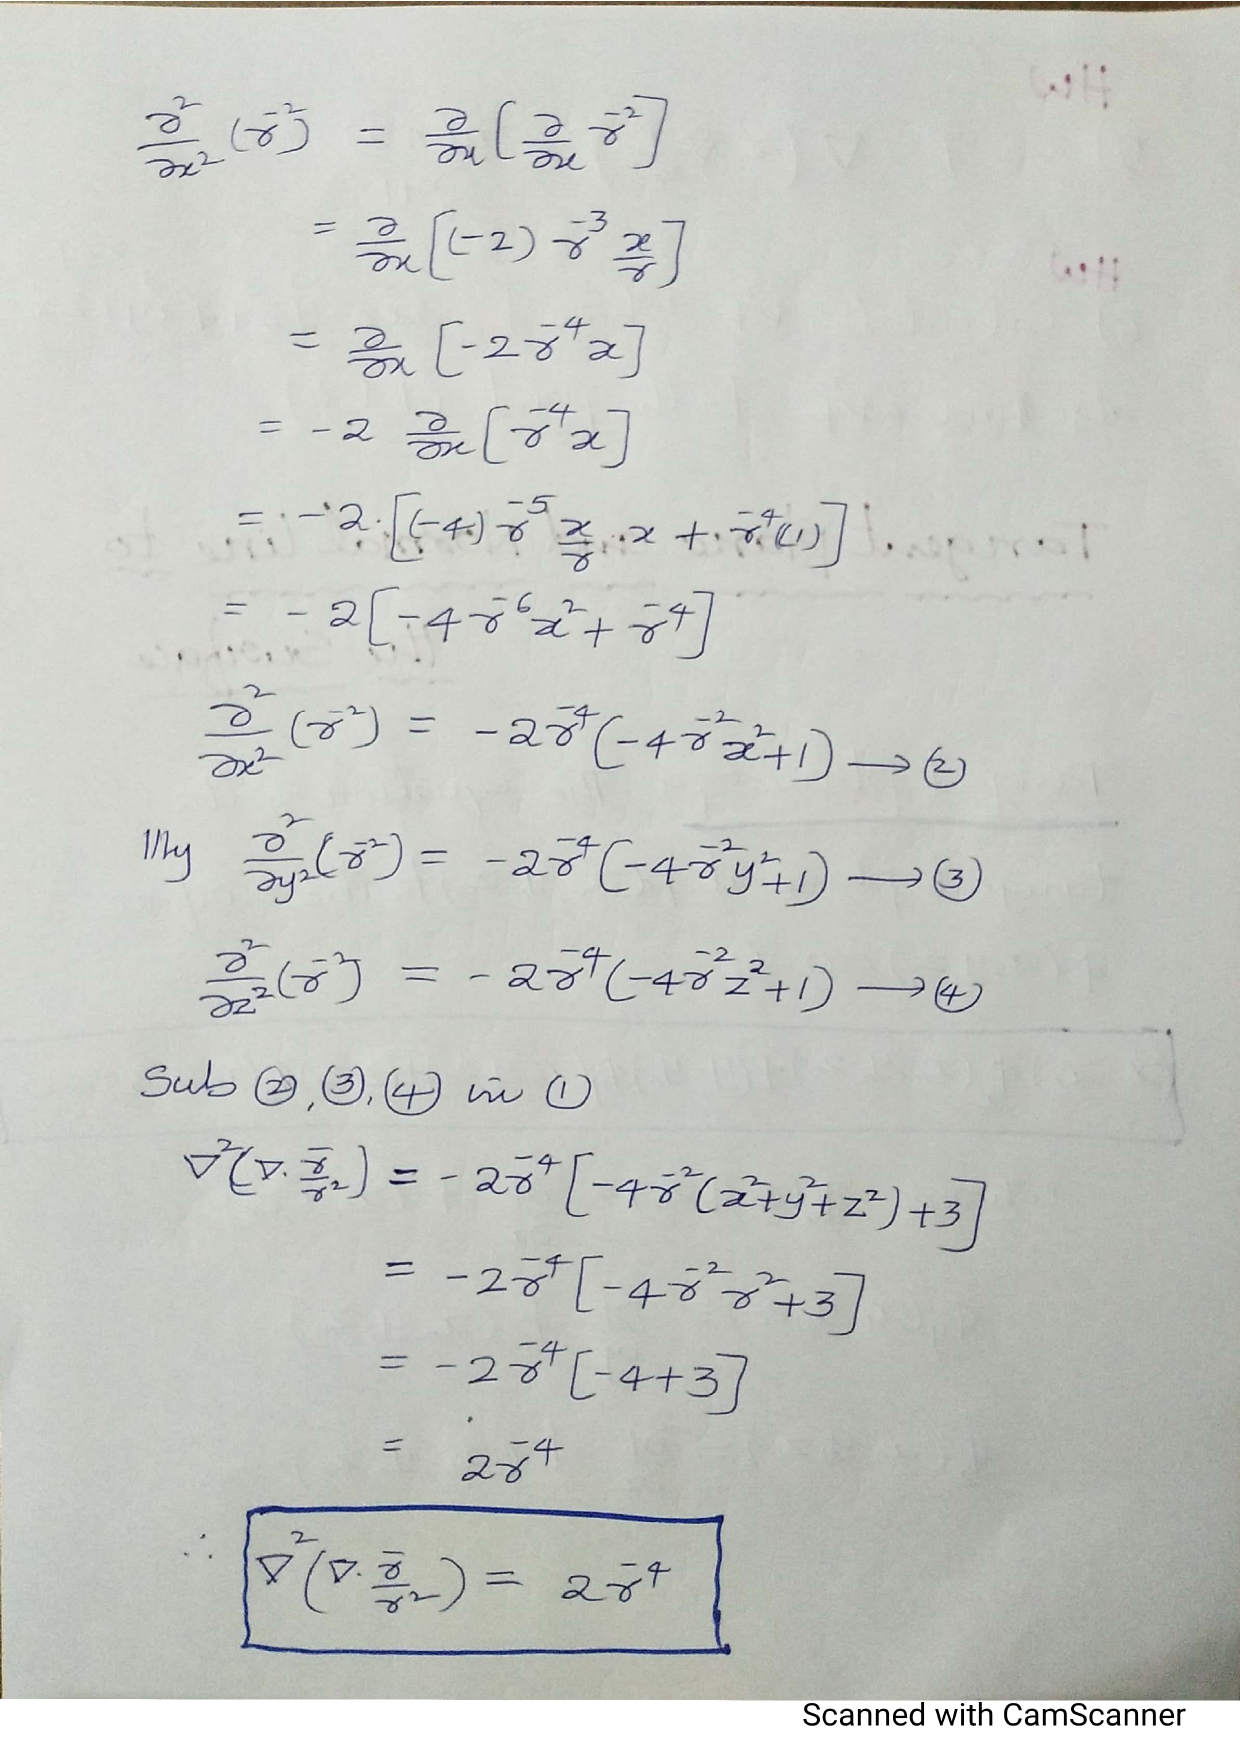 ∂²/∂x² (r⁻²) = ∂/∂x [∂/∂x r⁻²]
= ∂/∂x [(-2) r⁻³ x/r]
= ∂/∂x [-2r⁻⁴x]
= -2 ∂/∂x [r⁻⁴x]
= -2 [(-4) r⁻⁵ x/r · x + r⁻⁴(1)]
= -2[-4r⁻⁶x² + r⁻⁴]
∂²/∂x² (r⁻²) = -2r⁻⁴(-4r⁻²x²+1) → ②
|||ly ∂²/∂y² (r⁻²) = -2r⁻⁴(-4r⁻²y²+1) → ③
∂²/∂z² (r⁻²) = -2r⁻⁴(-4r⁻²z²+1) → ④
Sub ②, ③, ④ in ①
∇²(∇· r̄/r²) = -2r⁻⁴[-4r⁻²(x²+y²+z²)+3]
= -2r⁻⁴[-4r⁻²r²+3]
= -2r⁻⁴[-4+3]
= 2r⁻⁴
∴ ∇²(∇· r̄/r²) = 2r⁻⁴
Scanned with CamScanner